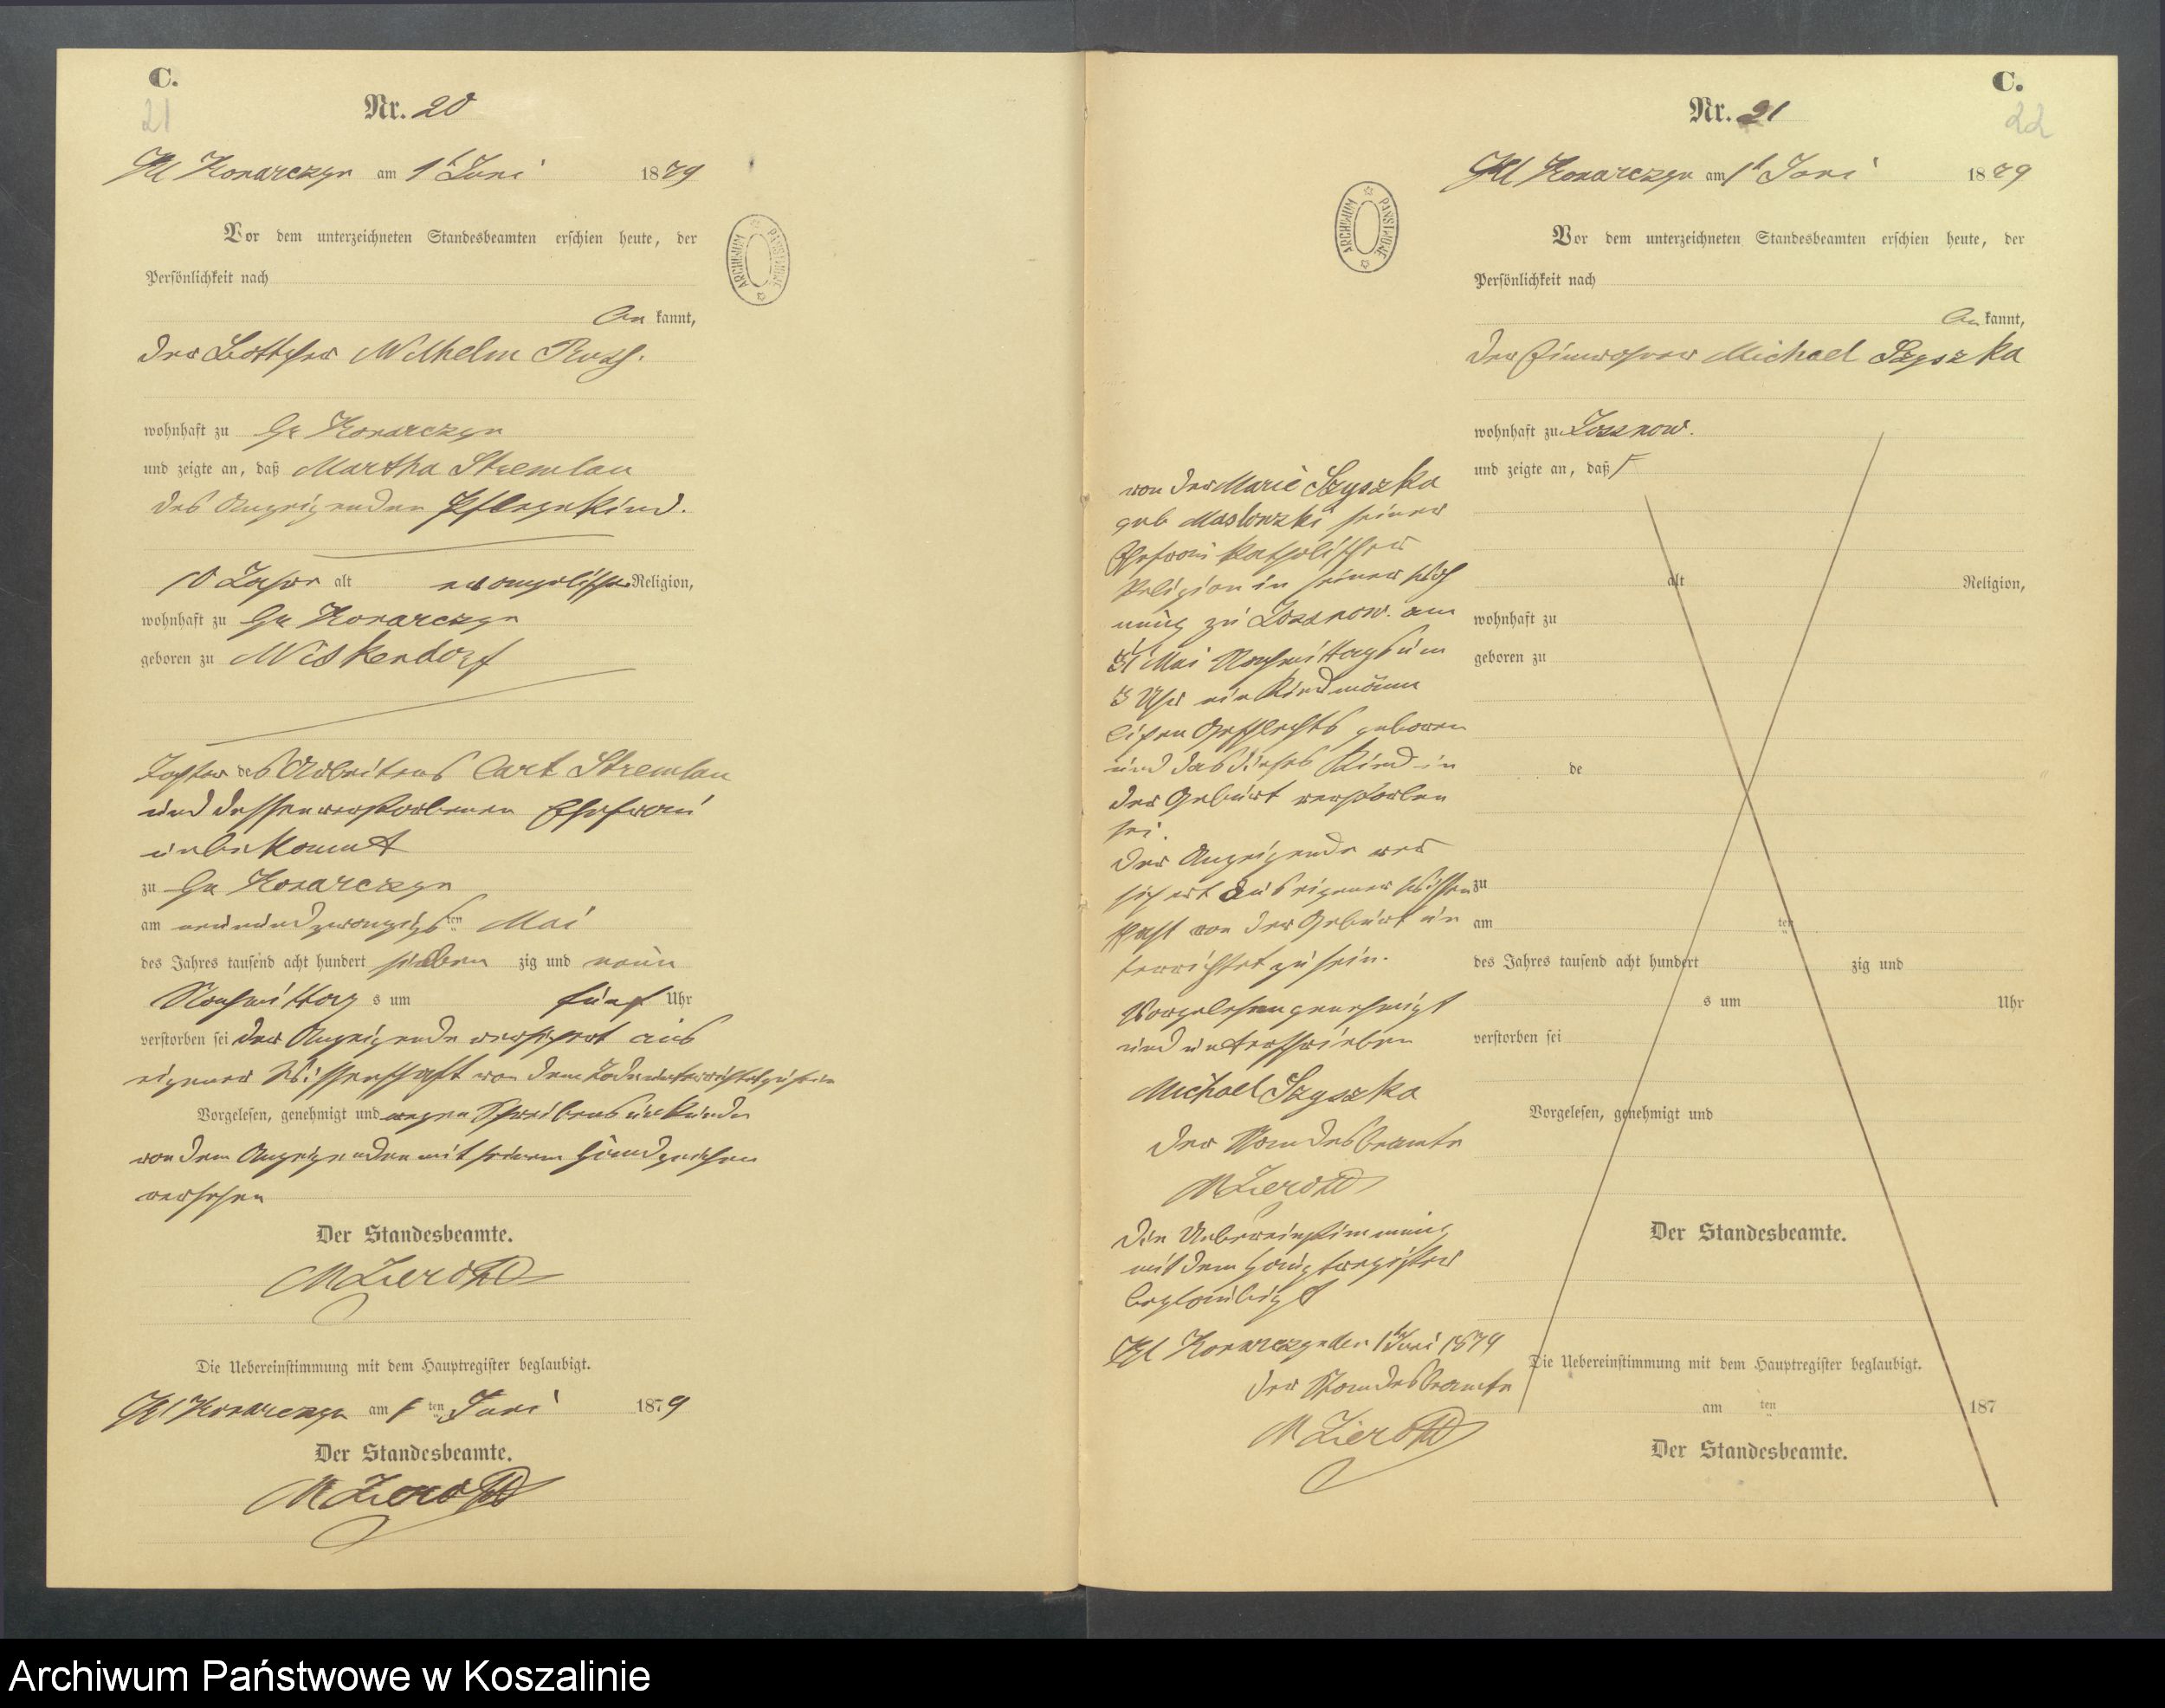 C.
21
Nr. 20
Kl Konarczyn am 1t Juni 1879
Vor dem unterzeichneten Standesbeamten erschien heute, der
Persönlichkeit nach
be kannt,
der Böttcher Wilhelm
wohnhaft zu Gr Konarczyn
und zeigte an, daß Martha Stremlau
des Anzeigenden Pflegekind.
10 Jahre alt evangelischer Religion,
wohnhaft zu Gr Konarczyn
geboren zu Niskendorf
Tochter des Arbeiters Carl Stremlau
und dessen verstorbenen Ehefrau
unbekannt
zu Gr Konarczyn
am neunundzwanzigsten Mai
des Jahres tausend acht hundert sieben zig und neun
Nachmittag s um fünf Uhr
verstorben sei der Anzeigende versichert aus
eigener Wissenschaft von dem Tode unterrichtet zu sein
Vorgelesen, genehmigt und wegen Schreibensunkunde
von dem Anzeigenden mit seinem Handzeichen
versehen
Der Standesbeamte.
Die Uebereinstimmung mit dem Hauptregister beglaubigt.
Kl Konarczyn am 1 ten Juni 1879
Der Standesbeamte.
C.
22
Nr. 21
Kl Konarczyn am 1t Juni 1879
ARCHIWUM PAŃSTWOWE
Vor dem unterzeichneten Standesbeamten erschien heute, der
Persönlichkeit nach
be kannt,
der Einwohner Michael Szyszka
wohnhaft zu Zosznow.
und zeigte an, daß
von der Marie Szyszka
geb Maslonzki seiner
Ehefrau katholischer
Religion in seiner Woh
nung zu Zosznow. am
31 Mai Nachmittags um
Uhr ein Kind männ
lichen Geschlechts geboren
und das dieses Kind in
der Geburt verstorben
sei.
Der Anzeigende ver
sichert aus eigener Wissen
schaft von der Geburt un
terrichtet zu sein.
Vorgelesen genehmigt
und unterschrieben
Michael Szyszka
Der Standesbeamte
Die Uebereinstimmung
mit dem Hauptregister
beglaubigt
Kl Konarczyn den 1ten Juni 1879
Der Standesbeamte
alt Religion,
wohnhaft zu
geboren zu
de
zu
am ten
des Jahres tausend acht hundert zig und
s um Uhr
verstorben sei
Vorgelesen, genehmigt und
Der Standesbeamte.
Die Uebereinstimmung mit dem Hauptregister beglaubigt.
am ten 187
Der Standesbeamte.
Archiwum Państwowe w Koszalinie